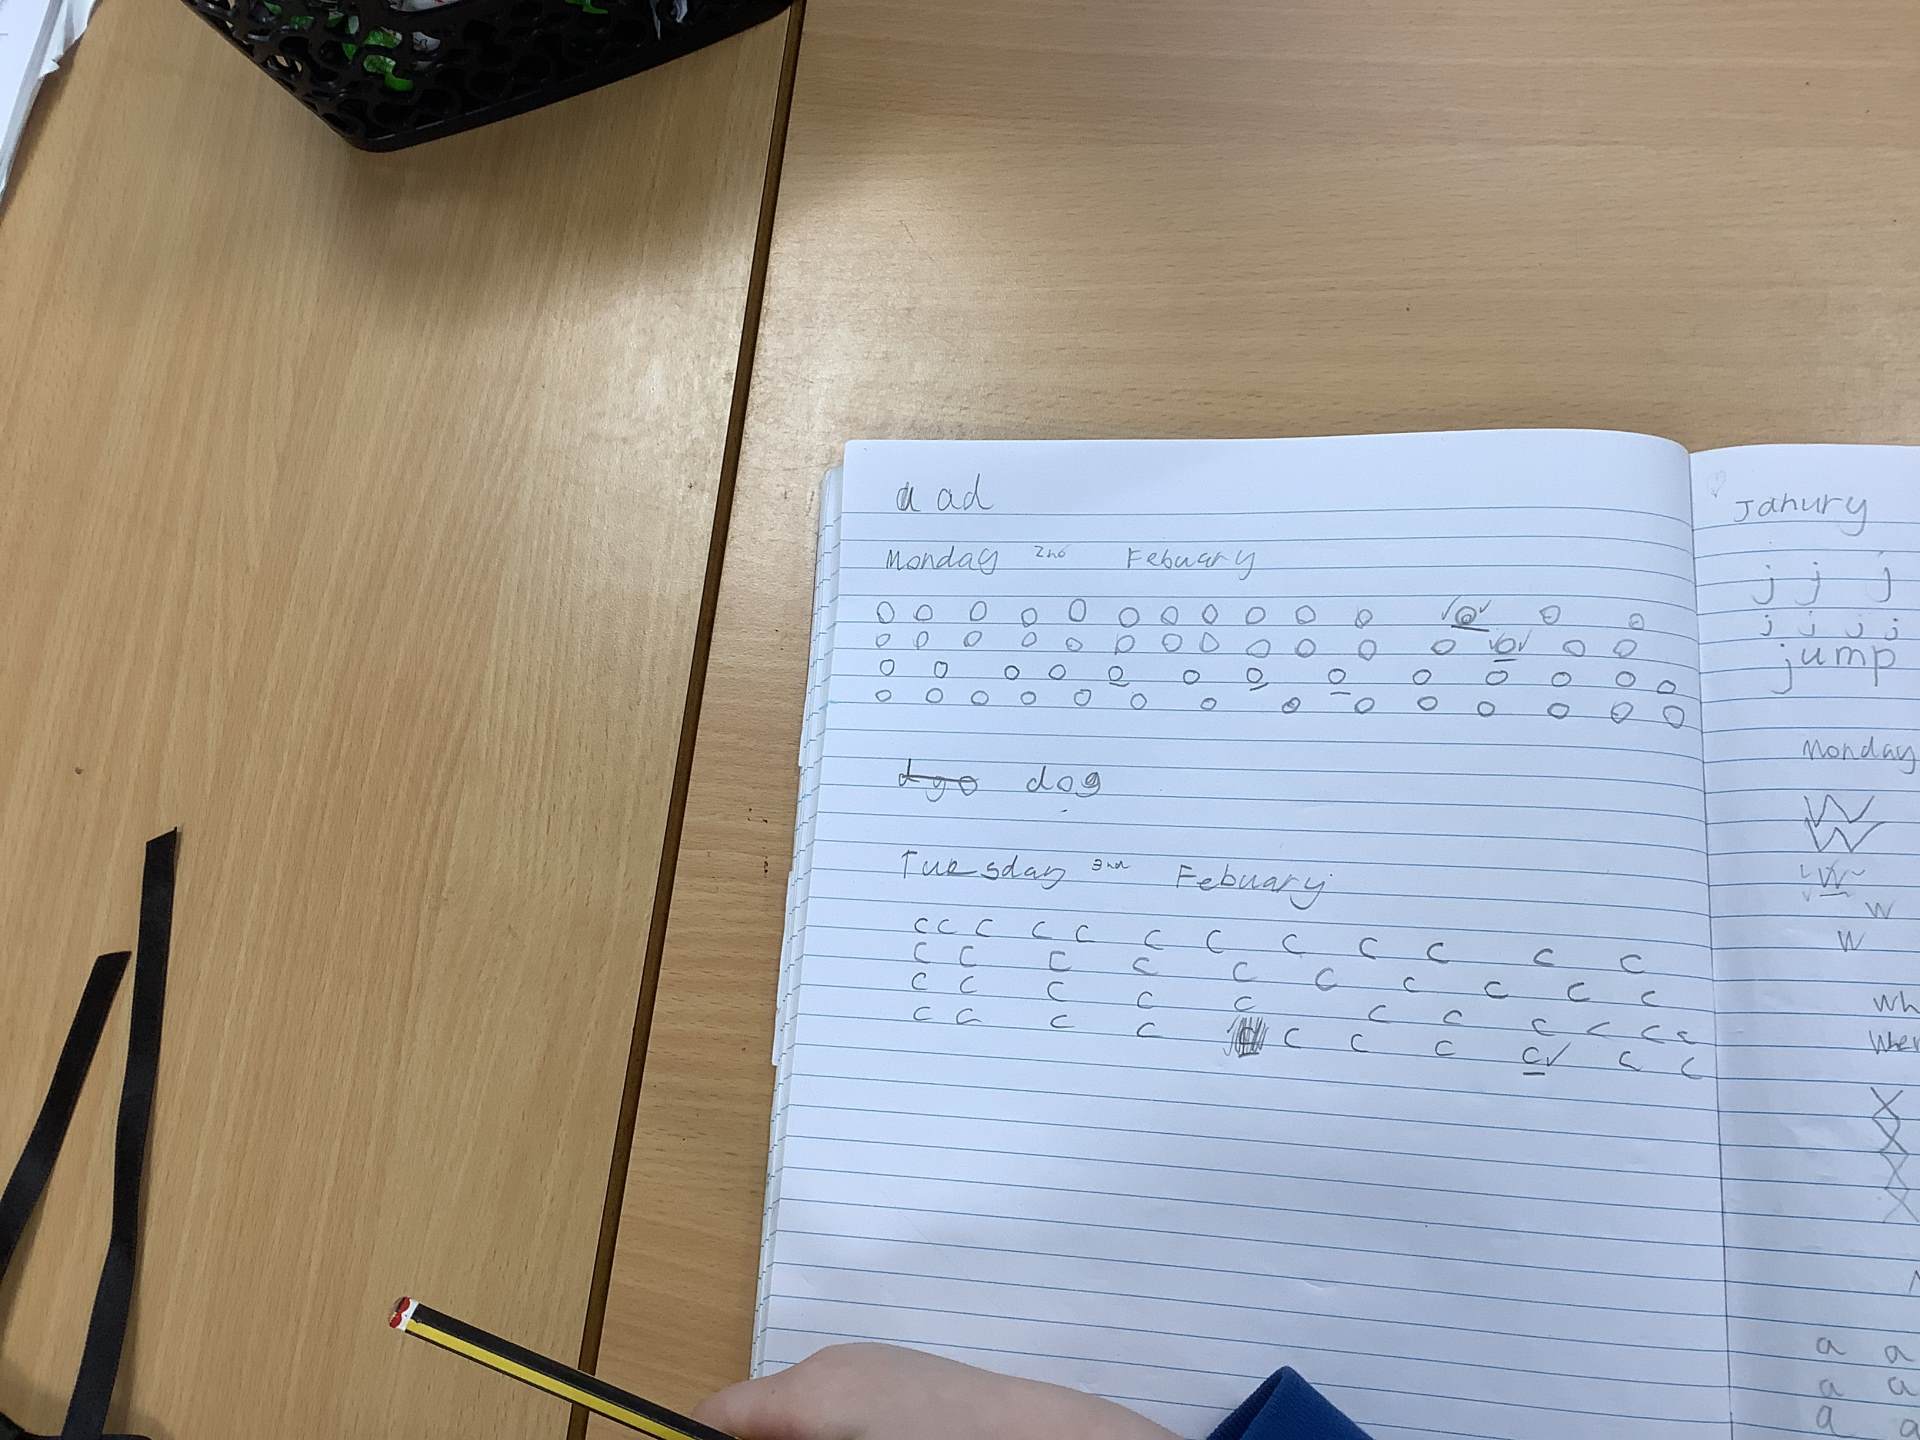 a ad
Monday 2nd Febuary
o o o o o o o o o o o o o o
o o o o o o o o o o o o o o o
o o o o o o o o o o o o o
o o o o o o o o o o o o o o
dyo dog
Tuesday 3nd Febuary
c c c c c c c c c c c c
c c c c c c c c c c
c c c c c c c c c c c
c c c c c c c c c c
Janury
j j j
j j j j
jump
Monday
W
W
W
W
W
wh
X
X
X
X
a a
a a
a a